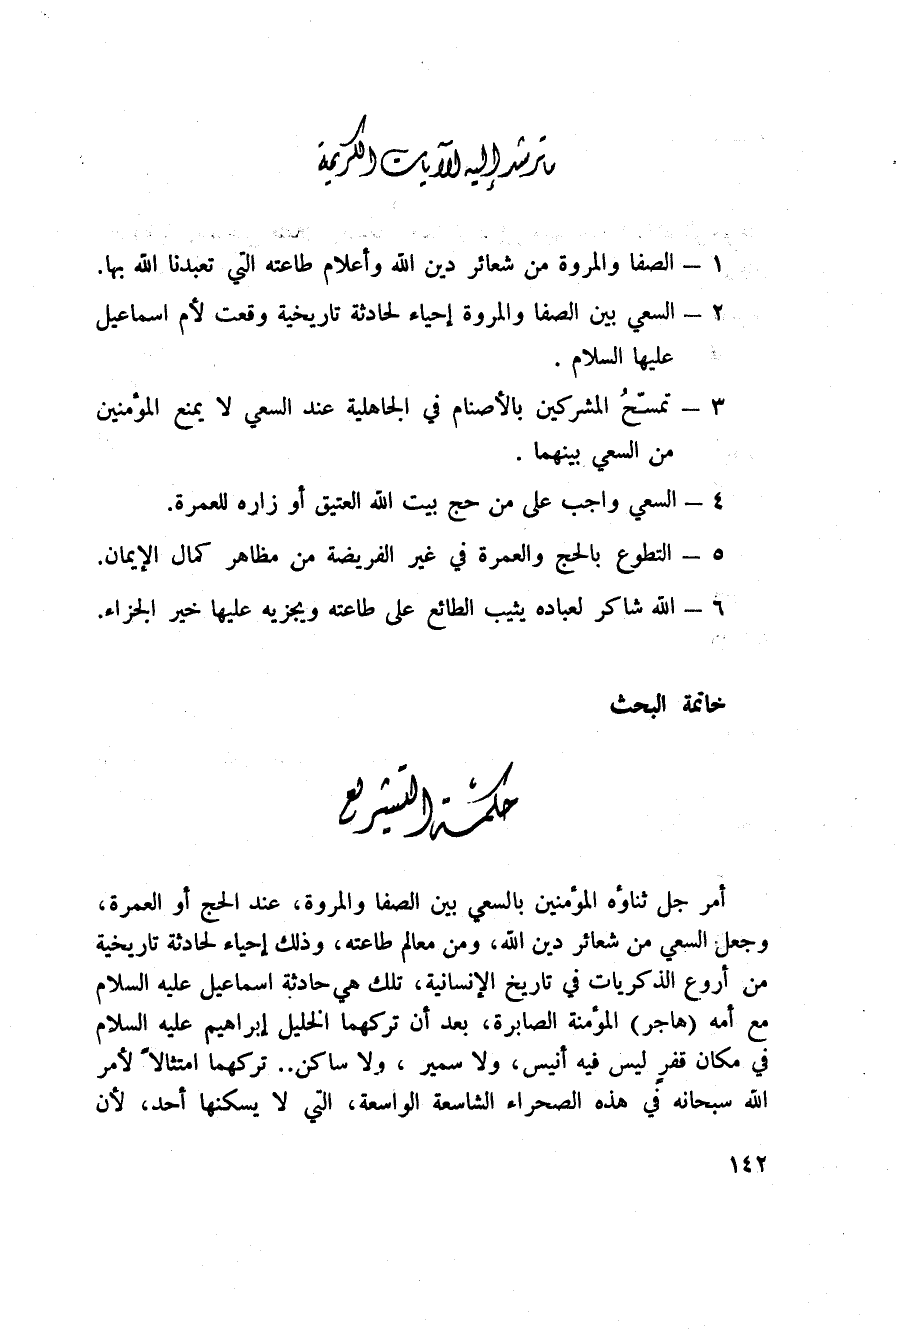 ما ترشد إليه الآيات الكريمة
١ – الصفا والمروة من شعائر دين الله وأعلام طاعته التي تعبدنا الله بها.
٢ – السعي بين الصفا والمروة إحياء لحادثة تاريخية وقعت لأم اسماعيل
عليها السلام .
٣ – تمسّحُ المشركين بالأصنام في الجاهلية عند السعي لا يمنع المؤمنين
من السعي بينهما .
٤ – السعي واجب على من حج بيت الله العتيق أو زاره للعمرة.
٥ – التطوع بالحج والعمرة في غير الفريضة من مظاهر كمال الإيمان.
٦ – الله شاكر لعباده يثيب الطائع على طاعته ويجزيه عليها خير الجزاء.
خاتمة البحث
حكمة التشريع
أمر جل ثناؤه المؤمنين بالسعي بين الصفا والمروة، عند الحج أو العمرة،
وجعل السعي من شعائر دين الله، ومن معالم طاعته، وذلك إحياء لحادثة تاريخية
من أروع الذكريات في تاريخ الإنسانية، تلك هي حادثة اسماعيل عليه السلام
مع أمه (هاجر) المؤمنة الصابرة، بعد أن تركهما الخليل إبراهيم عليه السلام
في مكان قفرٍ ليس فيه أنيس، ولا سمير ، ولا ساكن.. تركهما امتثالاً لأمر
الله سبحانه في هذه الصحراء الشاسعة الواسعة، التي لا يسكنها أحد، لأن
١٤٢